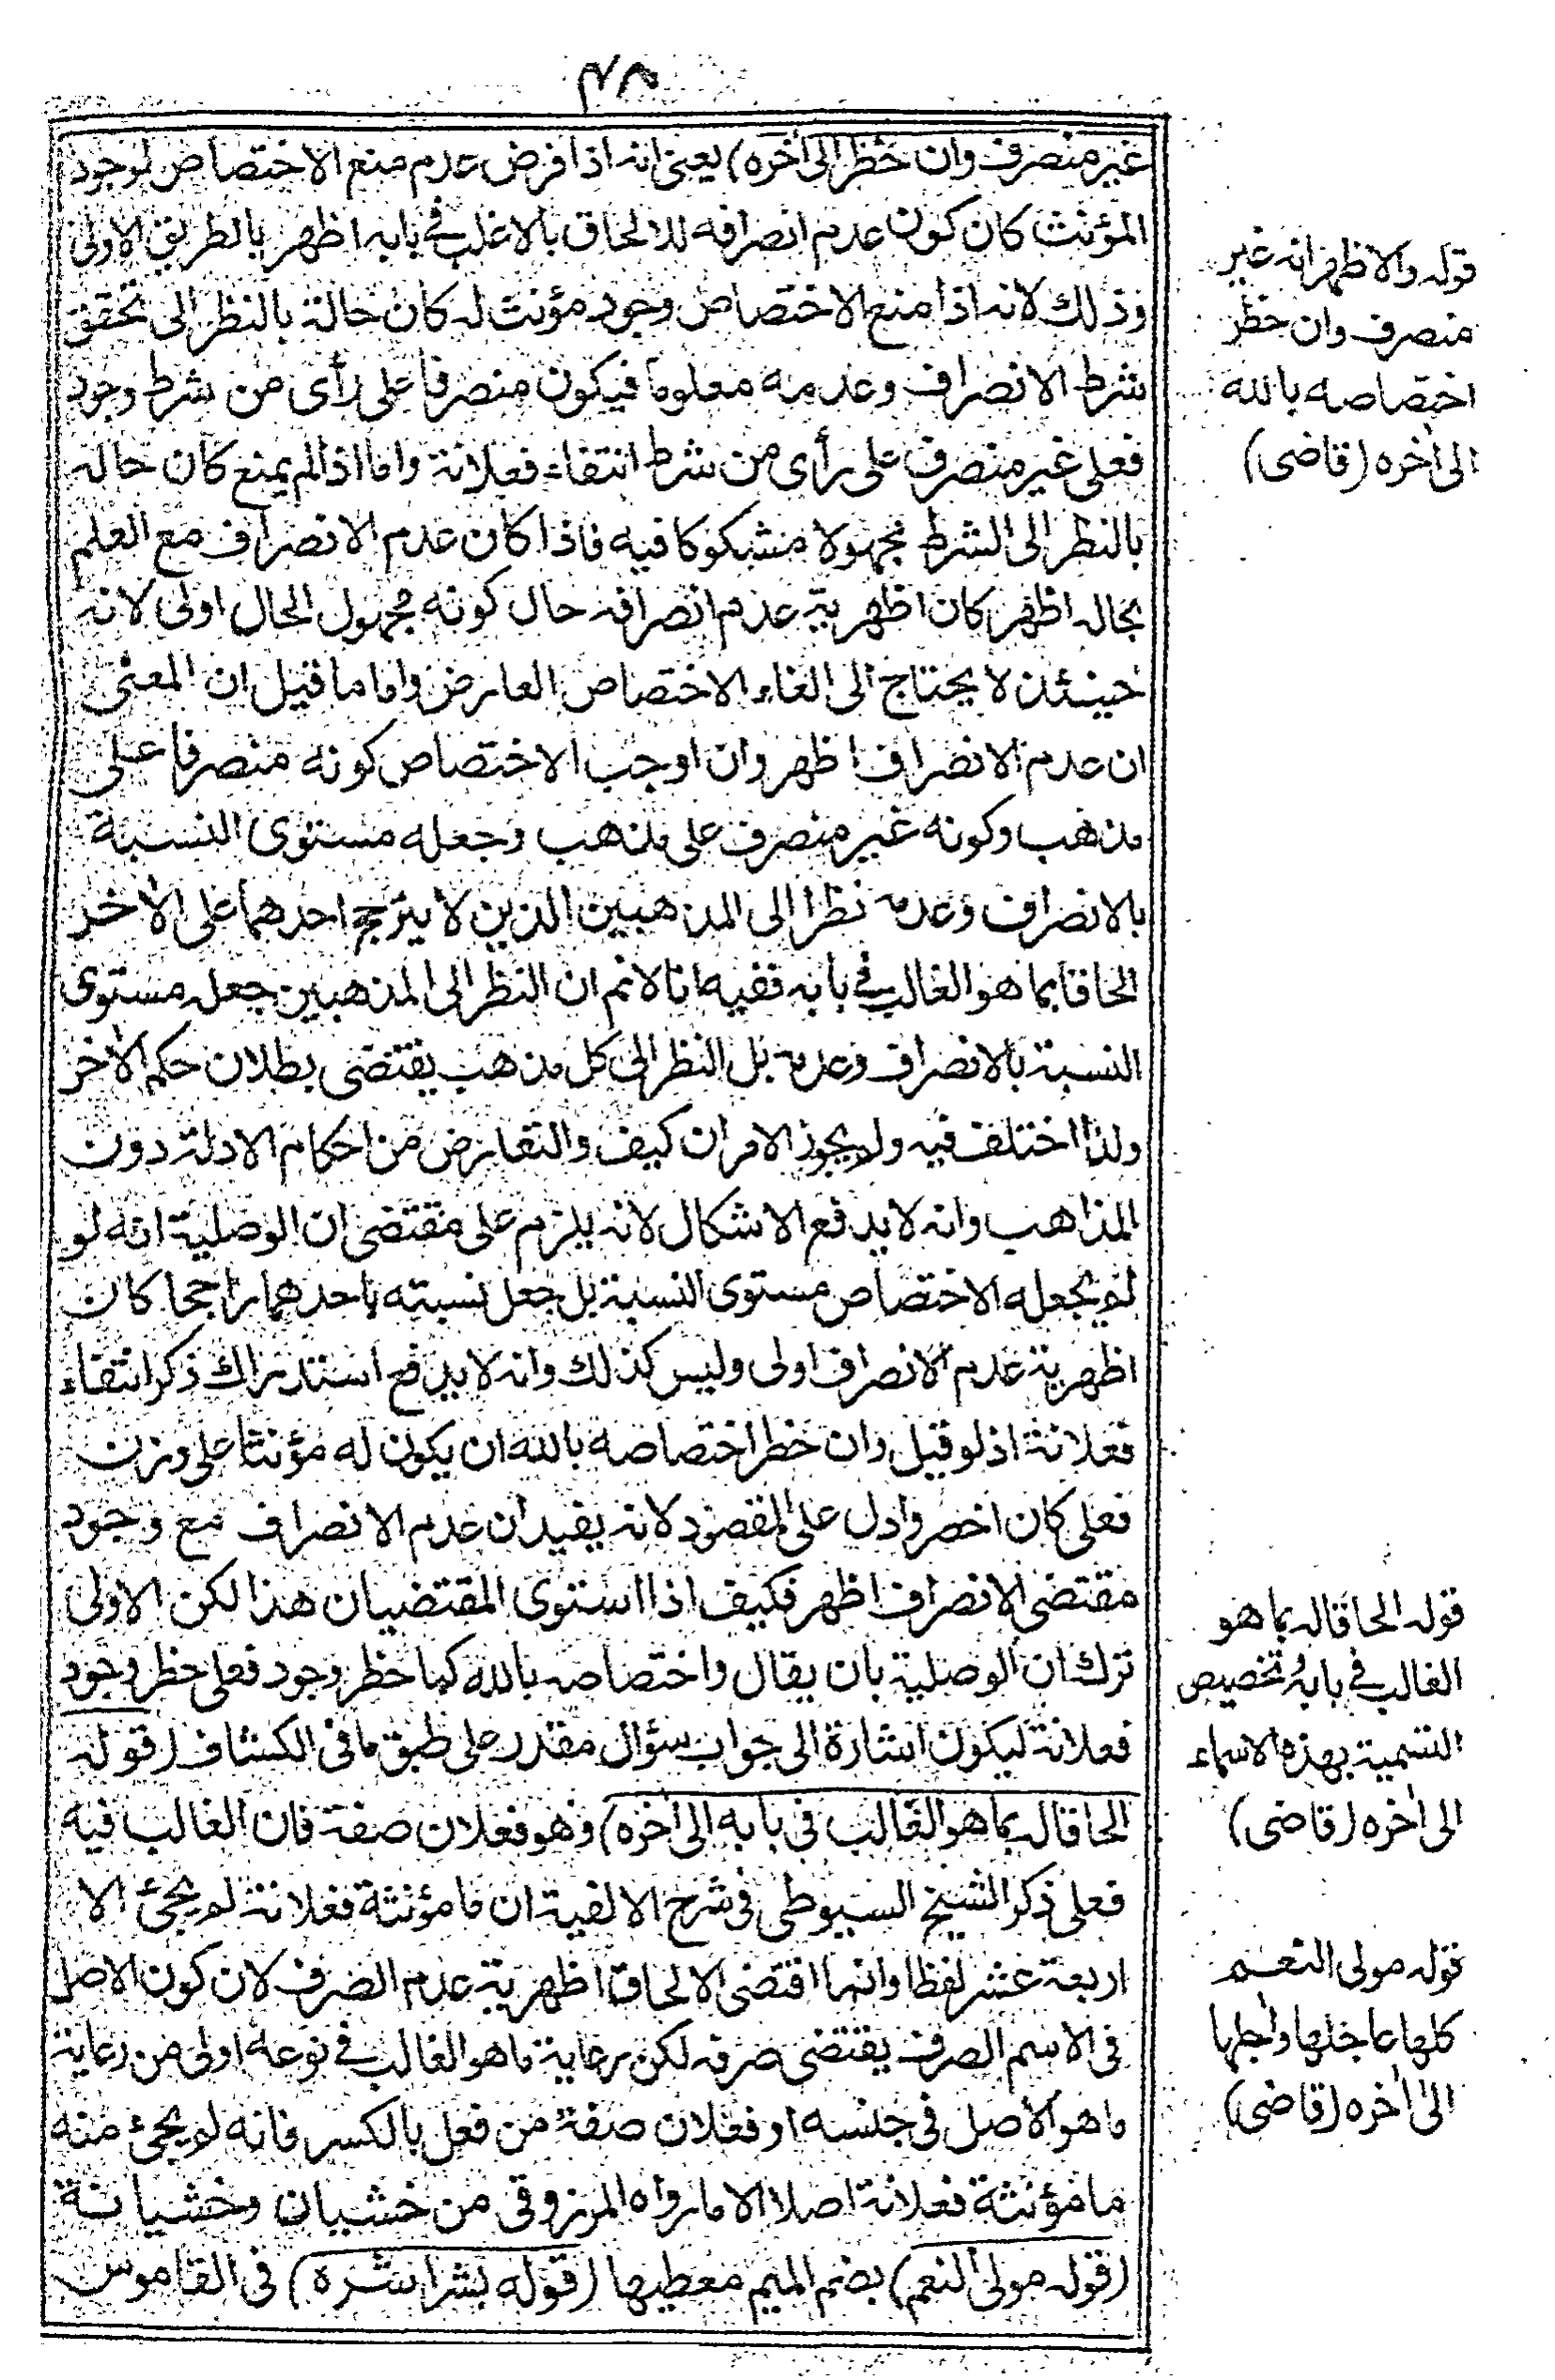 غير منصرف وان حظر الى آخره) يعنى انه اذا فرض عدم منع الاختصاص لوجود
المؤنث كان كون عدم انصرافه للالحاق بالاغلب فى بابه اظهر بالطريق الاولى
وذلك لانه اذا منع الاختصاص وجود مؤنث له كان حالة بالنظر الى تحقق
شرط الانصراف وعدمه معلوما فيكون منصرفا على رأى من شرط وجود
فعلى غير منصرف على رأى من شرط انتفاء فعلانة واما اذا لم يمنع كان حاله
بالنظر الى الشرط مجهولا مشكوكا فيه فاذا كان عدم الانصراف مع العلم
بحاله اظهر كان اظهرية عدم انصرافه حال كونه مجهول الحال اولى لانه
حينئذ لا يحتاج الى الغاء الاختصاص العارض واما ما قيل ان المعنى
ان عدم الانصراف اظهر وان اوجب الاختصاص كونه منصرفا على
مذهب وكونه غير منصرف على مذهب وجعله مستوى النسبة
بالانصراف وعدمه نظرا الى المذهبين الذين لا يترجح احدهما على الآخر
الحاقا بما هو الغالب فى بابه ففيه انا لانم ان النظر الى المذهبين جعله مستوى
النسبة بالانصراف وعدمه بل النظر الى كل مذهب يقتضى بطلان حكم الآخر
ولذا اختلف فيه ولم يجوز الامران كيف والتعارض من احكام الادلة دون
المذاهب وانه لا يدفع الاشكال لانه يلزم على مقتضى ان الوصلية انه لو
لم يجعله الاختصاص مستوى النسبة بل جعل نسبته باحدهما راجحا كان
اظهرية عدم الانصراف اولى وليس كذلك وانه لا يدفع استدراك ذكر انتفاء
فعلانة اذ لو قيل وان حظر اختصاصه بالله ان يكون له مؤنثا على وزن
فعلى كان اخصر وادل على المقصود لانه يفيد ان عدم الانصراف مع وجود
مقتضى الانصراف اظهر فكيف اذا استوى المقتضيان هذا لكن الاولى
ترك ان الوصلية بان يقال واختصاصه بالله كما حظر وجود فعلى حظر وجود
فعلانة ليكون اشارة الى جواب سؤال مقدر على طبق ما فى الكشاف (قوله
الحاقا له بما هو الغالب فى بابه الى آخره) وهو فعلان صفة فان الغالب فيه
فعلى ذكر الشيخ السيوطى فى شرح الالفية ان ما مؤنثة فعلانة لم يجئ الا
اربعة عشر لفظا وانما اقتضى الالحاق اظهرية عدم الصرف لان كون الاصل
فى الاسم الصرف يقتضى صرفه لكن رعاية ما هو الغالب فى نوعه اولى من رعاية
ما هو الاصل فى جنسه او فعلان صفة من فعل بالكسر فانه لم يجئ منه
ما مؤنثة فعلانة اصلا الا ما رواه المرزوقى من خشيان وخشيانة
(قوله مولى النعم) بضم الميم معطيها (قوله بشراشره) فى القاموس
قوله والاظهر انه غير
منصرف وان حظر
اختصاصه بالله
الى آخره (قاضى)
قوله الحاقا له بما هو
الغالب فى بابه وتخصيص
التسمية بهذه الاسماء
الى آخره (قاضى)
قوله مولى النعم
كلها عاجلها وآجلها
الى آخره (قاضى)